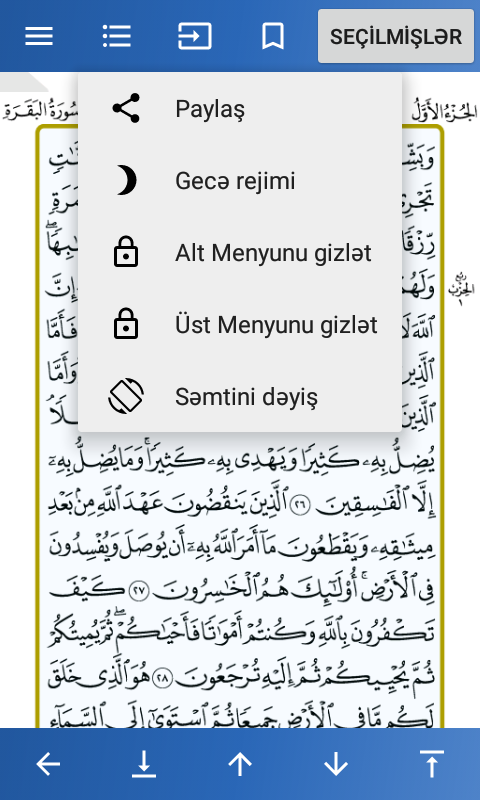 SEÇİLMİŞLƏR
الجُزْءُ الأَوَّلُ
سُورَةُ البَقَرَةِ
Paylaş
Gecə rejimi
Alt Menyunu gizlət
Üst Menyunu gizlət
Səmtini dəyiş
يُضِلُّ بِهِۦ كَثِيرًا وَيَهْدِى بِهِۦ كَثِيرًا ۚ وَمَا يُضِلُّ بِهِۦٓ
إِلَّا الْفَاسِقِينَ ٢٦ الَّذِينَ يَنقُضُونَ عَهْدَ اللَّهِ مِنۢ بَعْدِ
مِيثَاقِهِۦ وَيَقْطَعُونَ مَآ أَمَرَ اللَّهُ بِهِۦٓ أَن يُوصَلَ وَيُفْسِدُونَ
فِى الْأَرْضِ ۚ أُو۟لَـٰٓئِكَ هُمُ الْخَاسِرُونَ ٢٧ كَيْفَ
تَكْفُرُونَ بِاللَّهِ وَكُنتُمْ أَمْوَاتًا فَأَحْيَاكُمْ ۖ ثُمَّ يُمِيتُكُمْ
ثُمَّ يُحْيِيكُمْ ثُمَّ إِلَيْهِ تُرْجَعُونَ ٢٨ هُوَ الَّذِى خَلَقَ
لَكُم مَّا فِى الْأَرْضِ جَمِيعًا ثُمَّ اسْتَوَىٰٓ إِلَى السَّمَآءِ